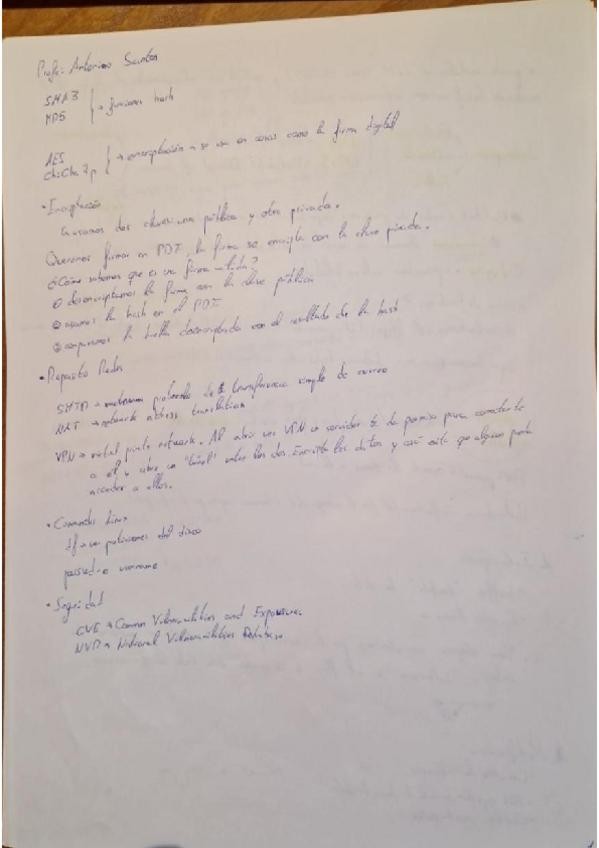 Profe: Antonino Santos
SHA3
MD5 } → funciones hash
AES
ChaCha20 } → encriptación → se usa en cosas como la firma digital
• Encriptación
↳ usamos dos claves: una pública y otra privada.
Queremos firmar un PDF, la firma se encripta con la clave privada.
¿Cómo sabemos que es una firma válida?
① desencriptamos la firma con la clave pública
② usamos la hash en el PDF
③ comparamos la huella desencriptada con el resultado de la hash
• Repasito Redes
SMTP → protocolo de transferencia simple de correo
NAT → network address translation
VPN → virtual private network. Al abrir una VPN un servidor te da permiso para conectarte
a él y abre un "túnel" entre los dos. Encripta los datos y así evita que alguien pueda
acceder a ellos.
• Comandos Linux
df → ver particiones del disco
passwd → username
• Seguridad
CVE → Common Vulnerabilities and Exposures
NVD → National Vulnerabilities Database